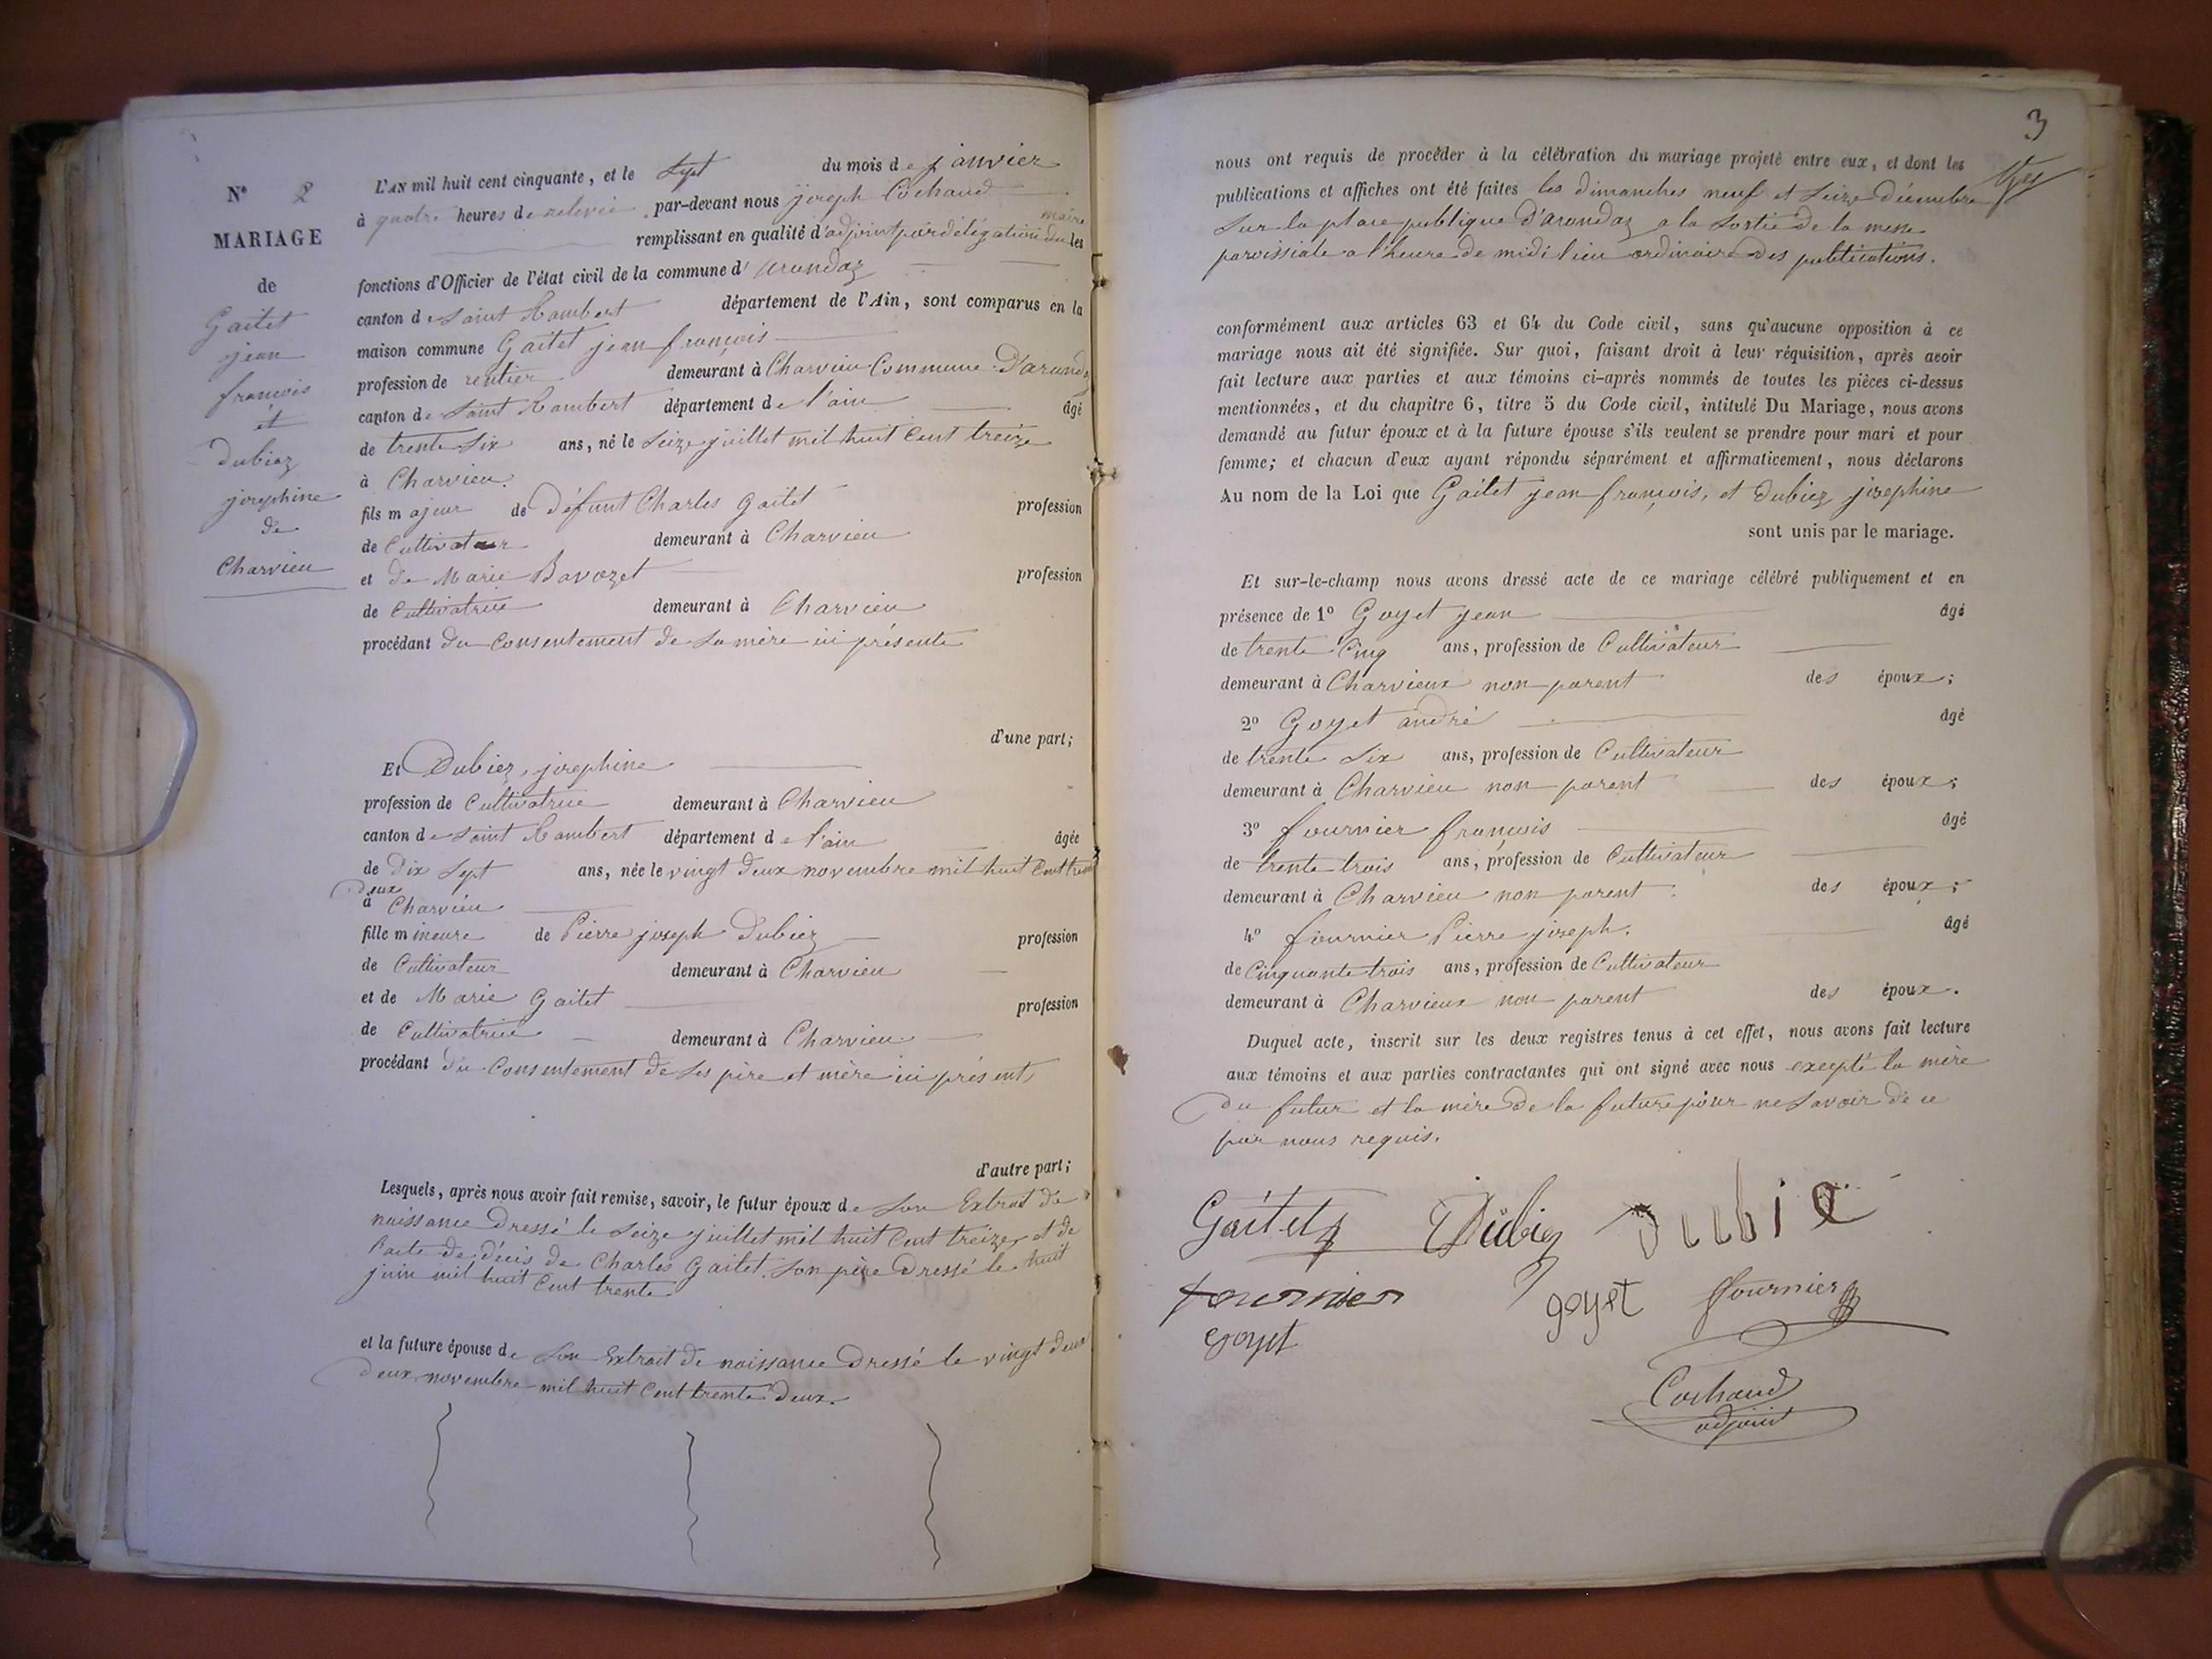 N° 2
MARIAGE
de
Gaitet
jean
francois
et
dubiez
josephine
de
Charvieu
L'AN mil huit cent cinquante, et le Sept du mois de janvier
à quatre heures de relevée par-devant nous joseph Cochaud
remplissant en qualité d'adjoint par délégation du maire les
fonctions d'Officier de l'état civil de la commune d'arandaz
canton de Saint Rambert département de l'Ain, sont comparus en la
maison commune Gaitet jean françois
profession de rentier demeurant à Charvieu Commune D'arandaz
canton de Saint Rambert département de l'ain âgé
de trente Six ans, né le Seize juillet mil huit Cent treize
à Charvieu.
fils majeur de Défunt Charles Gaitet profession
de Cultivateur demeurant à Charvieu
et de Marie Bavozet profession
de Cultivatrice demeurant à Charvieu
procédant du Consentement de Sa mère ici présente
d'une part;
Et Dubiez, josephine
profession de Cultivatrice demeurant à Charvieu
canton de Saint Rambert département de l'ain âgée
de Dix Sept ans, née le vingt Deux novembre mil huit Cent trente
Deux
à Charvieu
fille mineure de Pierre joseph Dubiez profession
de Cultivateur demeurant à Charvieu
et de Marie Gaitet profession
de Cultivatrice demeurant à Charvieu
procédant du Consentement de Ses père et mère ici présents
d'autre part;
Lesquels, après nous avoir fait remise, savoir, le futur époux de Son Extrait de
naissance Dressé le Seize juillet mil huit Cent treize, et de
l'acte de décis de Charles Gaitet Son père Dressé le huit
juin mil huit Cent trente
et la future épouse de Son Extrait de naissance Dressé le vingt deux
Deux novembre mil huit Cent trente Deux.
3
nous ont requis de procéder à la célébration du mariage projeté entre eux, et dont les
publications et affiches ont été faites les dimanches neuf et Seize Décembre
Sur la place publique D'arandaz a la Sortie de la messe
paroissiale a l'heure de midi lieu ordinaire Des publications.
conformément aux articles 63 et 64 du Code civil, sans qu'aucune opposition à ce
mariage nous ait été signifiée. Sur quoi, faisant droit à leur réquisition, après avoir
fait lecture aux parties et aux témoins ci-après nommés de toutes les pièces ci-dessus
mentionnées, et du chapitre 6, titre 5 du Code civil, intitulé Du Mariage, nous avons
demandé au futur époux et à la future épouse s'ils veulent se prendre pour mari et pour
femme; et chacun d'eux ayant répondu séparément et affirmativement, nous déclarons
Au nom de la Loi que Gaitet jean françois, et dubiez josephine
sont unis par le mariage.
Et sur-le-champ nous avons dressé acte de ce mariage célébré publiquement et en
présence de 1° Goyet jean âgé
de trente Cinq ans, profession de Cultivateur
demeurant à Charvieux non parent des époux;
2° Goyet andré âgé
de trente Six ans, profession de Cultivateur
demeurant à Charvieu non parent des époux;
3° fournier françois âgé
de trente trois ans, profession de Cultivateur
demeurant à Charvieu non parent des époux;
4° fournier Pierre joseph. âgé
de Cinquante trois ans, profession de Cultivateur
demeurant à Charvieux non parent des époux.
Duquel acte, inscrit sur les deux registres tenus à cet effet, nous avons fait lecture
aux témoins et aux parties contractantes qui ont signé avec nous excepté la mère
Du futur et la mère De la future pour ne Savoir de ce
par nous requis.
Gaitet Dubiez Dubie
fournier goyet fournier
goyet
Cochaud
adjoint